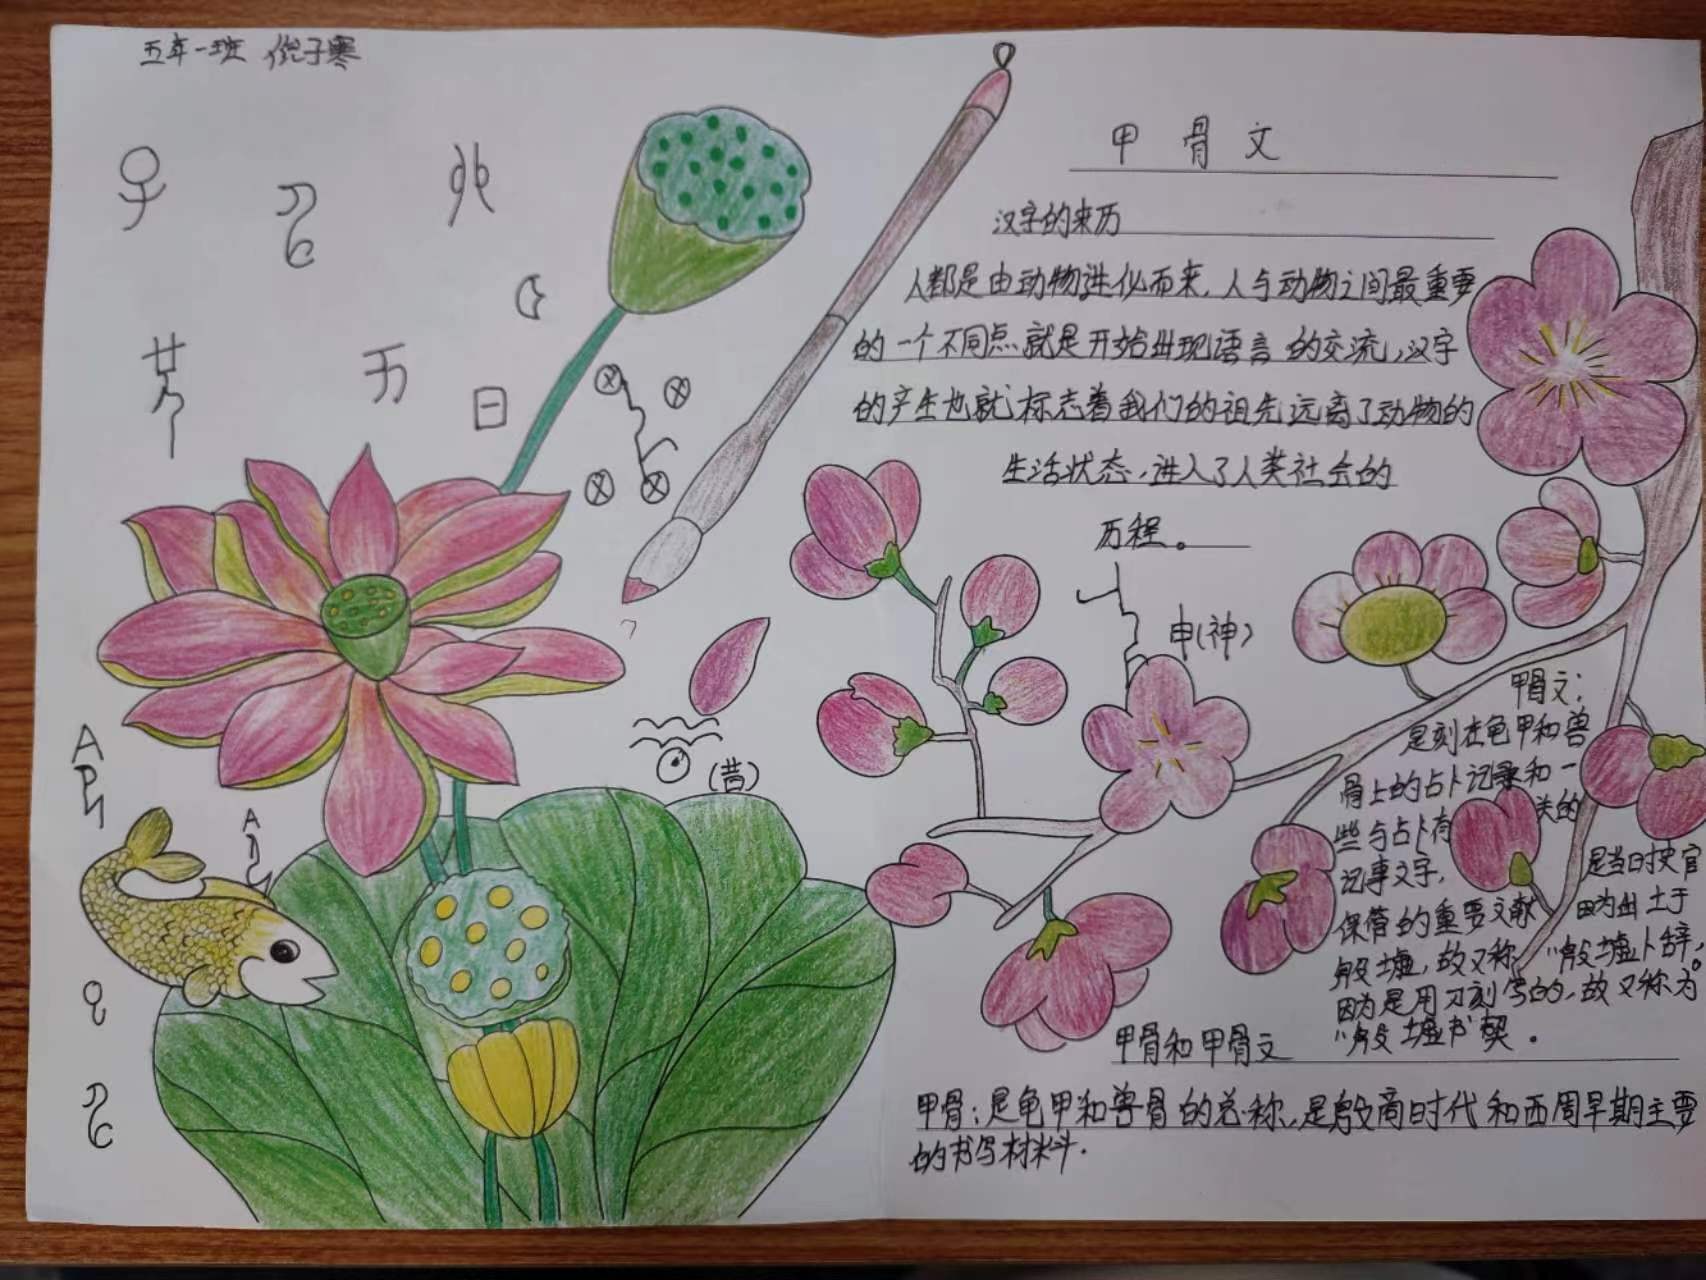 五年一班 倪子寒
甲骨文
汉字的来历
人都是由动物进化而来,人与动物之间最重要
的一个不同点就是开始出现语言的交流,汉字
的产生也就标志着我们的祖先远离了动物的
生活状态,进入了人类社会的
历程。
申(神)
(昔)
日
甲骨文:
是刻在龟甲和兽
骨上的占卜记录和一
些与占卜有关的
记事文字,是当时史官
保管的重要文献因为出土于
殷墟,故又称“殷墟卜辞,
因为是用刀刻写的,故又称为
“殷墟书契。
甲骨和甲骨文
甲骨:是龟甲和兽骨的总称,是殷商时代和西周早期主要
的书写材料.